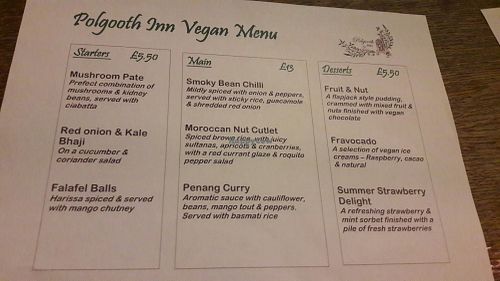 Polgooth Inn Vegan Menu
Starters £5.50
Mushroom Pate
Prefect combination of
mushrooms & kidney
beans, served with
ciabatta
Red onion & Kale
Bhaji
On a cucumber &
coriander salad
Falafel Balls
Harissa spiced & served
with mango chutney
Main £13
Smoky Bean Chilli
Mildly spiced with onion & peppers,
served with sticky rice, guacamole
& shredded red onion
Moroccan Nut Cutlet
Spiced brown rice, with juicy
sultanas, apricots & cranberries,
with a red currant glaze & roquito
pepper salad
Penang Curry
Aromatic sauce with cauliflower,
beans, mango tout & peppers.
Served with basmati rice
Desserts £5.50
Fruit & Nut
A flapjack style pudding,
crammed with mixed fruit &
nuts finished with vegan
chocolate
Fravocado
A selection of vegan ice
creams – Raspberry, cacao
& natural
Summer Strawberry
Delight
A refreshing strawberry &
mint sorbet finished with a
pile of fresh strawberries